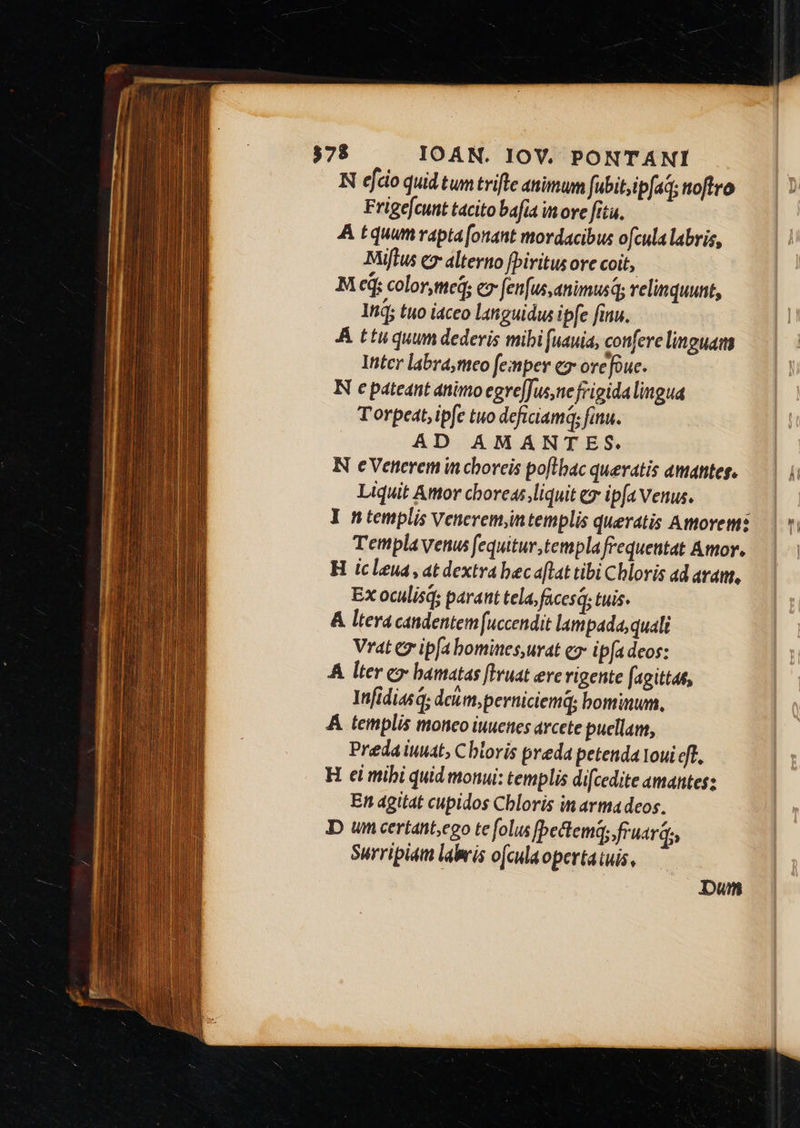 578 IOAN. IOV. PONTANI
N eſcio quid tum triſte animum ſubit,ipſaq́; noſtro
Frigeſcunt tacito baſia in ore ſitu.
A t quum rapta ſonant mordacibus oſcula labris,
Miſtus & alterno ſpiritus ore coit,
M eq́; color,meq́; & ſenſus,animusq́; relinquunt,
Inq́; tuo iaceo languidus ipſe ſinu.
A t tu quum dederis mihi ſuauia, conſere linguam
Inter labra,meo ſemper & ore foue.
N e pateant animo egreſſus,ne frigida lingua
Torpeat, ipſe tuo deficiamq́; ſinu.
AD AMANTES.
N e Venerem in choreis poſthac quæratis amantes.
Liquit Amor choreas,liquit & ipſa Venus.
I n templis Venerem,in templis quæratis Amorem:
Templa venus ſequitur,templa frequentat Amor.
H ic leua, at dextra hæc aſtat tibi Chloris ad aram,
Ex oculisq́; parant tela,facesq́; tuis.
A ltera candentem ſuccendit lampada,quali
Vrat & ipſa homines,urat & ipſa deos:
A lter & hamatas ſtruat ære rigente ſagittas,
Inſidiasq́; deûm,perniciemq́; hominum.
A templis moneo iuuenes arcete puellam,
Præda iuuat, Chloris præda petenda Ioui eſt.
H ei mihi quid monui: templis diſcedite amantes:
En agitat cupidos Chloris in arma deos.
D um certant,ego te ſolus ſpectemq́;,fruarq́;,
Surripiam labris oſcula operta tuis,
Dum